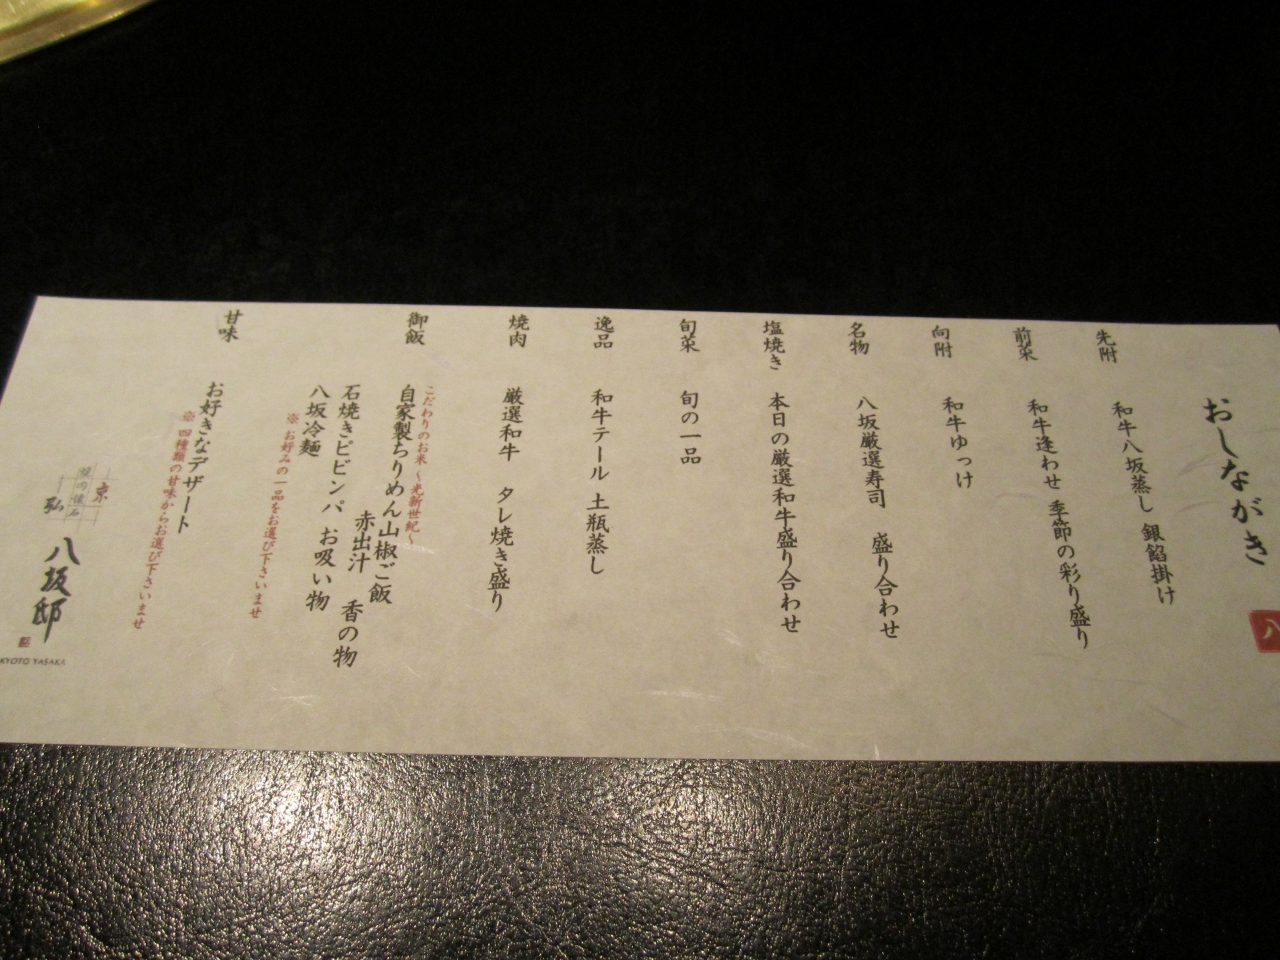 おしながき
八
先附 和牛八坂蒸し 銀餡掛け
前菜 和牛逢わせ 季節の彩り盛り
向附 和牛ゆっけ
名物 八坂厳選寿司 盛り合わせ
塩焼き 本日の厳選和牛盛り合わせ
旬菜 旬の一品
逸品 和牛テール 土瓶蒸し
焼肉 厳選和牛 タレ焼き盛り
御飯 こだわりのお米 ~光新世紀~
自家製ちりめん山椒ご飯
赤出汁 香の物
石焼きビビンパ お吸い物
八坂冷麺
※ お好みの一品をお選び下さいませ
甘味 お好きなデザート
※ 四種類の甘味からお選び下さいませ
京
焼肉懐石
弘
八坂邸
KYOTO YASAKA